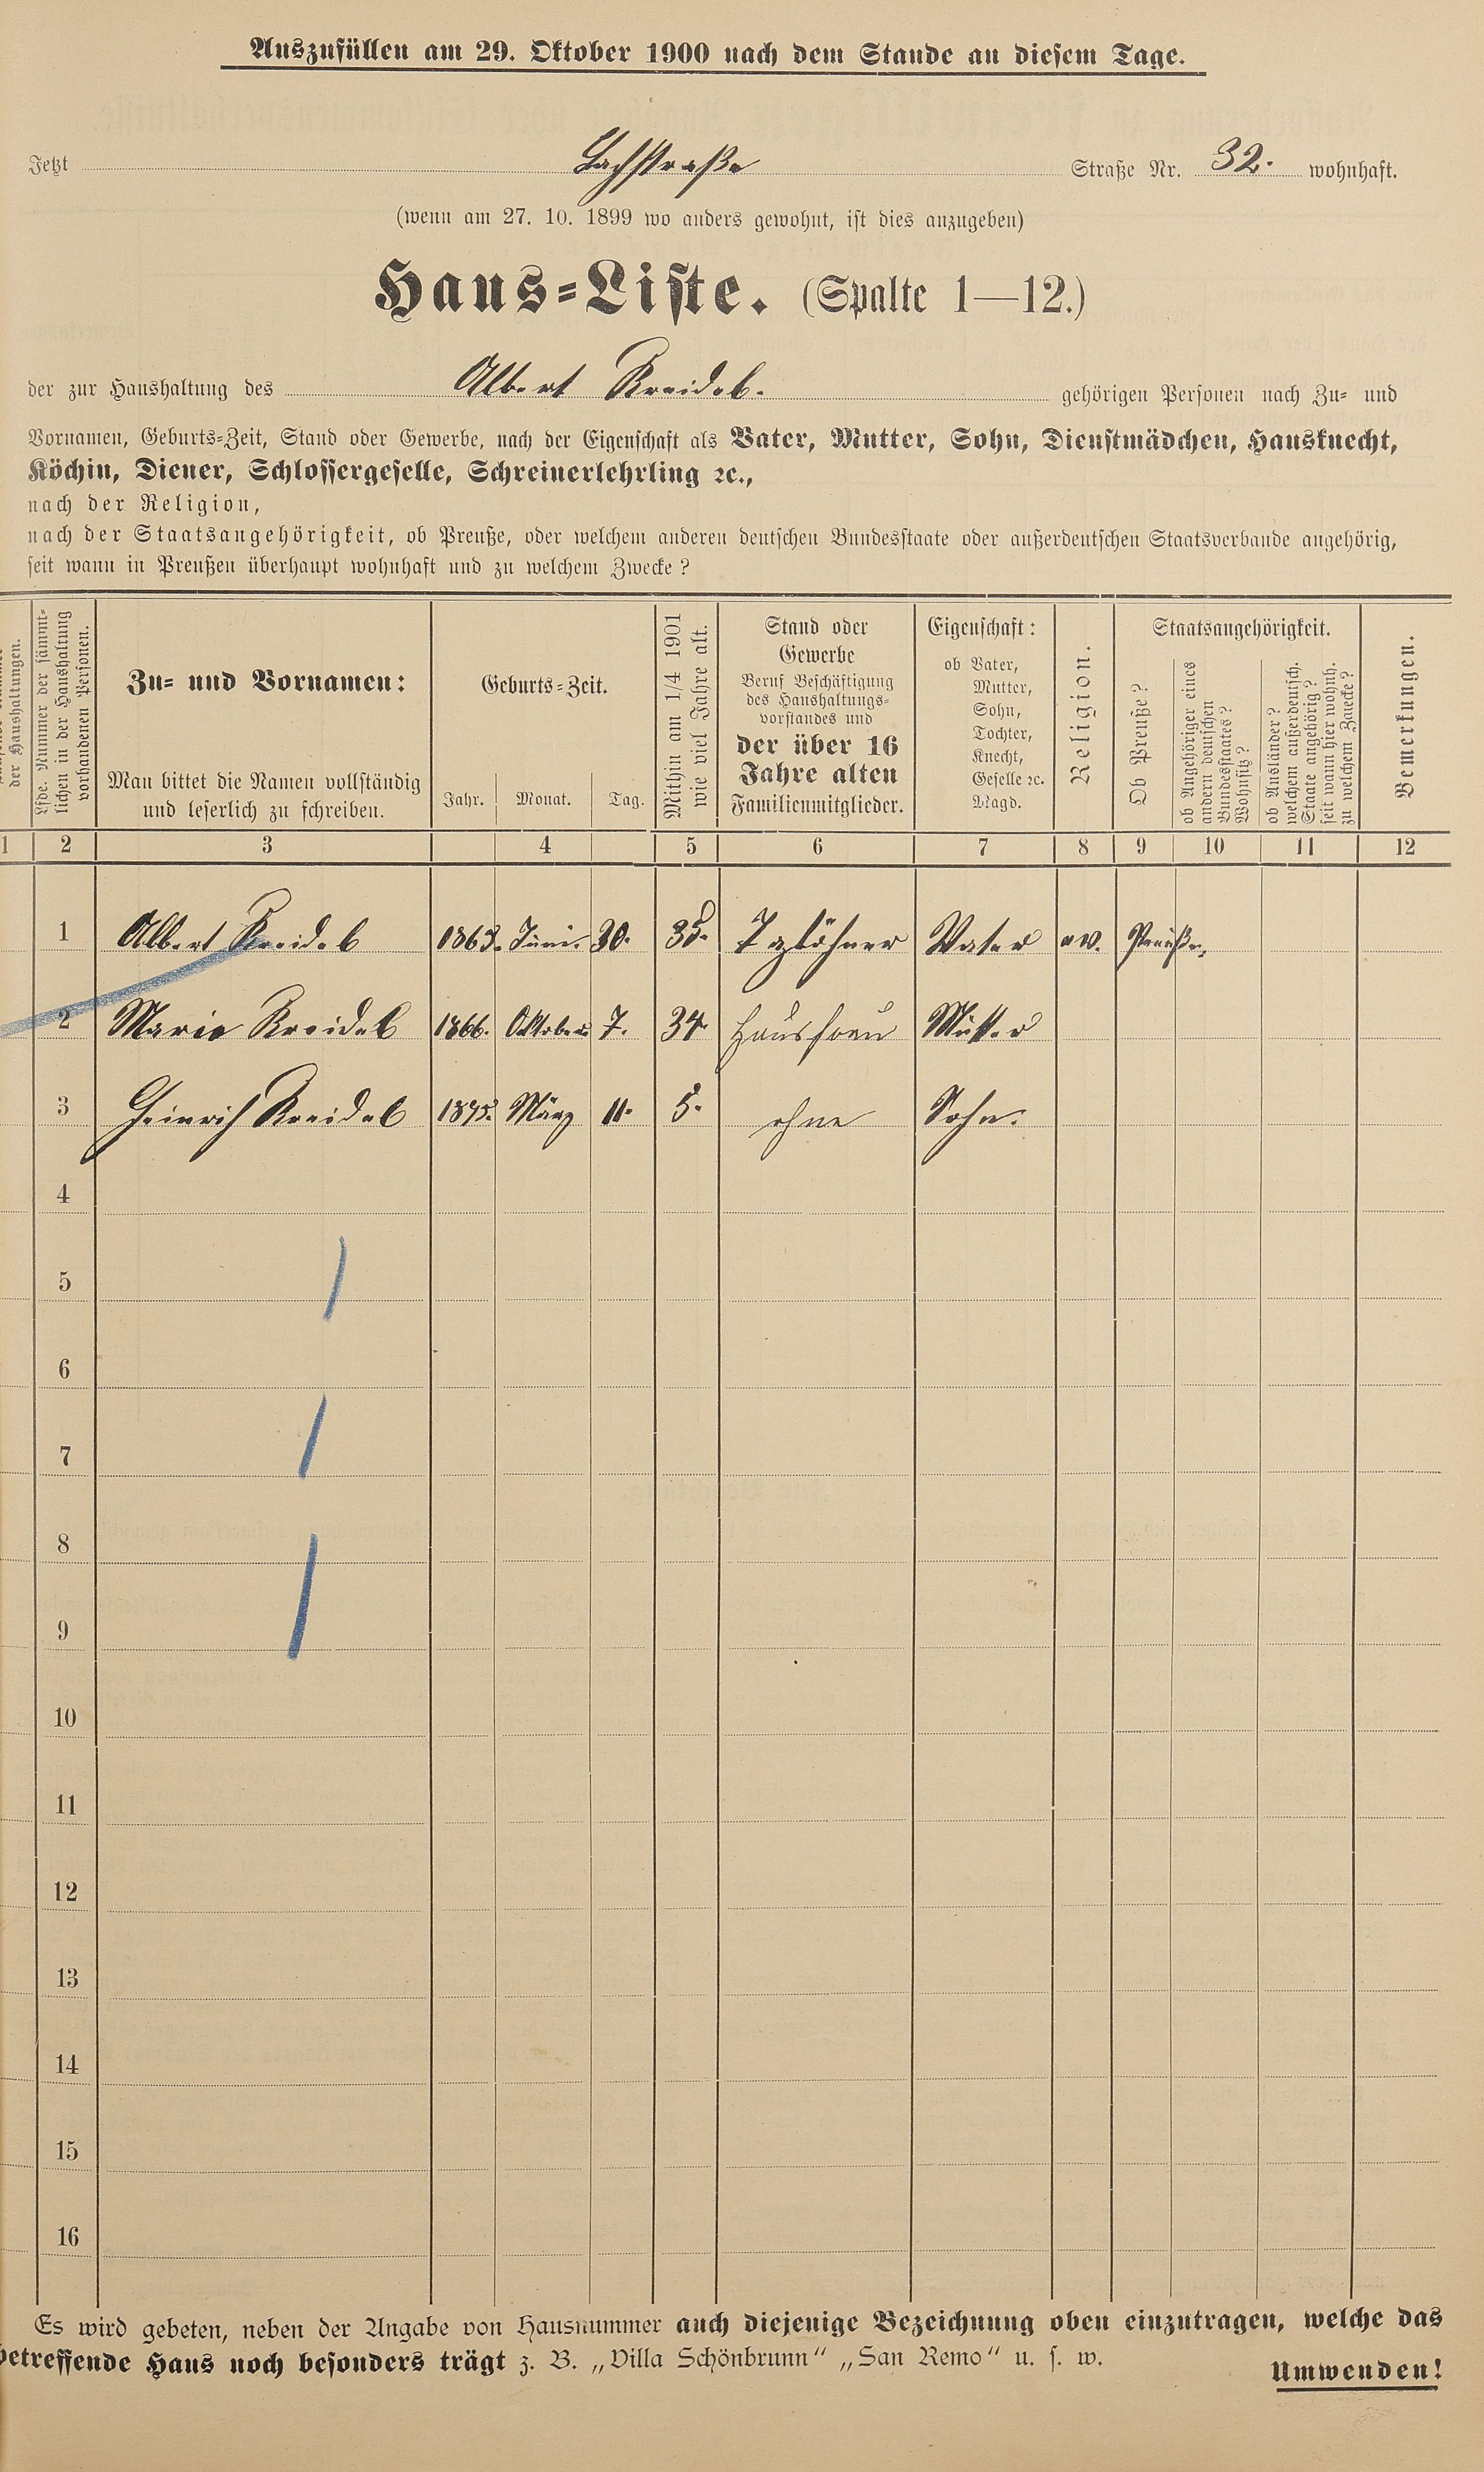 Auszufüllen am 29. Oktober 1900 nach dem Stande an diesem Tage.
Jetzt Straße Nr. 32. wohnhaft.
(wenn am 27. 10. 1899 wo anders gewohnt, ist dies anzugeben)
Haus-Liste. (Spalte 1—12.)
der zur Haushaltung des Albert Kreidel. gehörigen Personen nach Zu- und
Vornamen, Geburts-Zeit, Stand oder Gewerbe, nach der Eigenschaft als Vater, Mutter, Sohn, Dienstmädchen, Hausknecht,
Köchin, Diener, Schlossergeselle, Schreinerlehrling ꝛc.,
nach der Religion,
nach der Staatsangehörigkeit, ob Preuße, oder welchem anderen deutschen Bundesstaate oder außerdeutschen Staatsverbande angehörig,
seit wann in Preußen überhaupt wohnhaft und zu welchem Zwecke?
der Haushaltungen.
Lfde. Nummer der sämmt-
lichen in der Haushaltung
vorhandenen Personen.
Zu- und Vornamen:
Man bittet die Namen vollständig
und leserlich zu schreiben.
Geburts-Zeit.
Jahr. Monat. Tag.
Mithin am 1/4 1901
wie viel Jahre alt.
Stand oder
Gewerbe
Beruf Beschäftigung
des Haushaltungs-
vorstandes und
der über 16
Jahre alten
Familienmitglieder.
Eigenschaft:
ob Vater,
Mutter,
Sohn,
Tochter,
Knecht,
Geselle ꝛc.
Magd.
Religion.
Staatsangehörigkeit.
Ob Preuße?
ob Angehöriger eines
andern deutschen
Bundesstaates?
Wohnsitz?
ob Ausländer?
welchem außerdeutsch.
Staate angehörig?
seit wann hier wohnh.
zu welchem Zwecke?
Bemerkungen.
1 2 3 4 5 6 7 8 9 10 11 12
1 Albert Kreidel Juni 30. 35. Taglöhner Vater ev. Preuße,
2 Marie Kreidel 1866. Oktober 7. 34. Hausfrau Mutter
3 Heinrich Kreidel 1895. März 11. 5. ohne Sohn.
4
5
6
7
8
9
10
11
12
13
14
15
16
Es wird gebeten, neben der Angabe von Hausnummer auch diejenige Bezeichnung oben einzutragen, welche das
betreffende Haus noch besonders trägt z. B. „Villa Schönbrunn“ „San Remo“ u. s. w.
Umwenden!